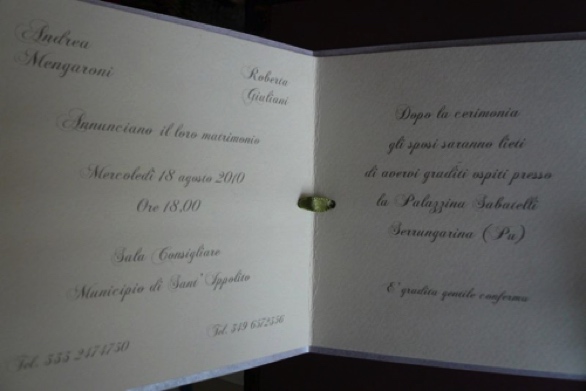 Andrea
Mengaroni
Roberta
Giuliani
Annunciano il loro matrimonio
Mercoledì 18 agosto 2010
Ore 18.00
Sala Consigliare
Municipio di Sant'Ippolito
Tel. 333 2474730
Tel. 349 6572556
Dopo la cerimonia
gli sposi saranno lieti
di avervi graditi ospiti presso
la Palazzina Sabatelli
Serrungarina (Pu)
E' gradita gentile conferma